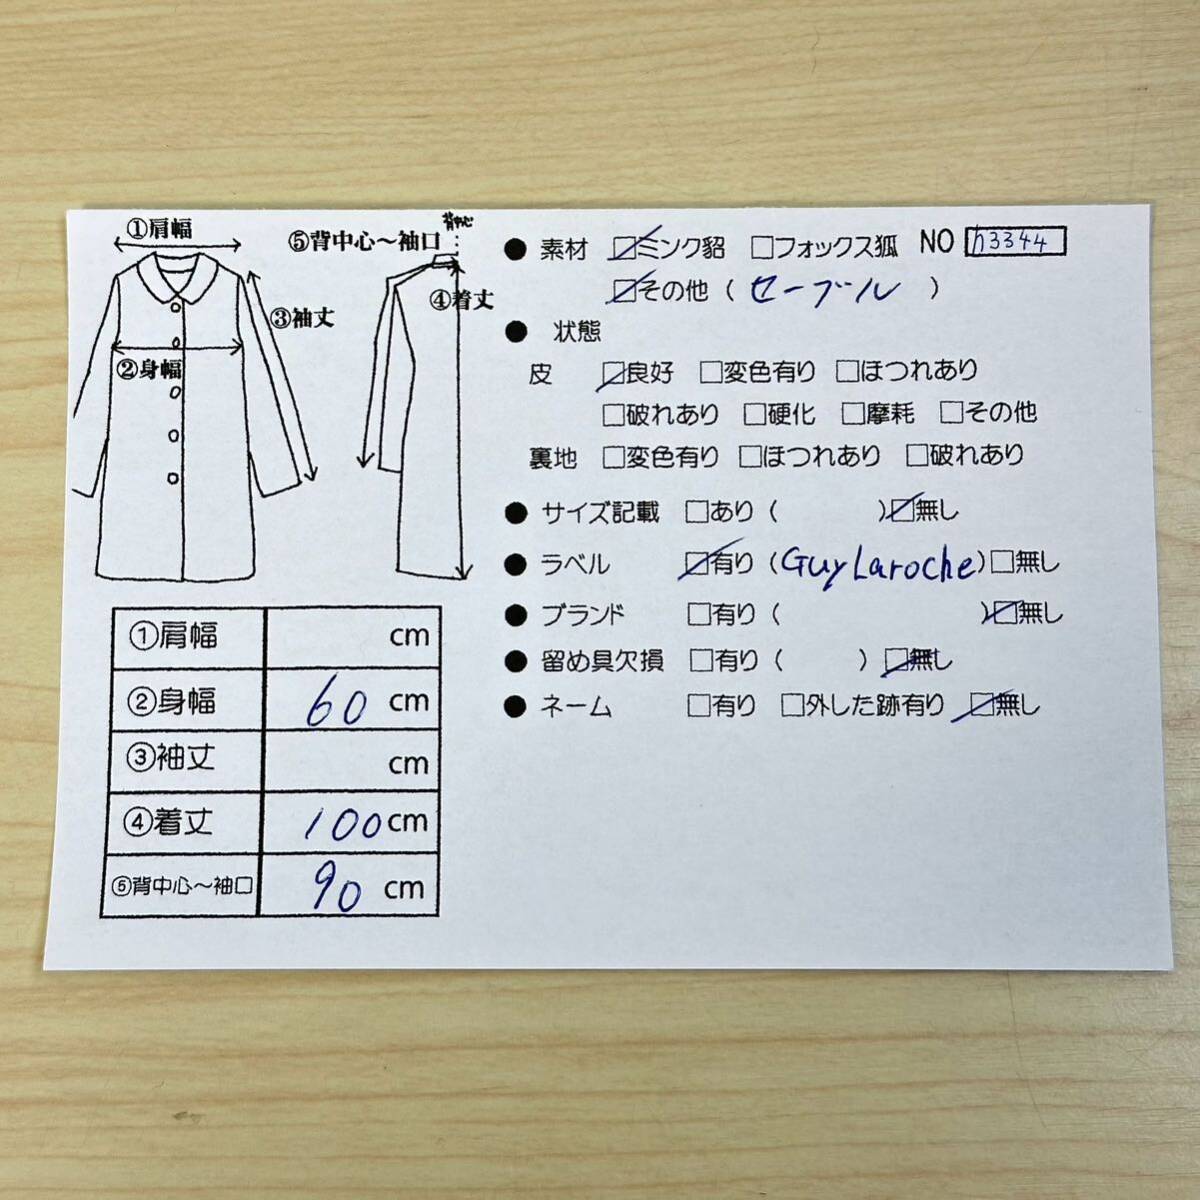 ①肩幅
背中心
⑤背中心～袖口
④着丈
③袖丈
②身幅
①肩幅 cm
②身幅 60 cm
③袖丈 cm
④着丈 100 cm
⑤背中心～袖口 90 cm
● 素材 ☑ミンク貂 □フォックス狐 NO n3344
☑その他 ( セーブル )
● 状態
皮 ☑良好 □変色有り □ほつれあり
□破れあり □硬化 □摩耗 □その他
裏地 □変色有り □ほつれあり □破れあり
● サイズ記載 □あり ( ) ☑無し
● ラベル ☑有り (Guy Laroche) □無し
● ブランド □有り ( ) ☑無し
● 留め具欠損 □有り ( ) ☑無し
● ネーム □有り □外した跡有り ☑無し